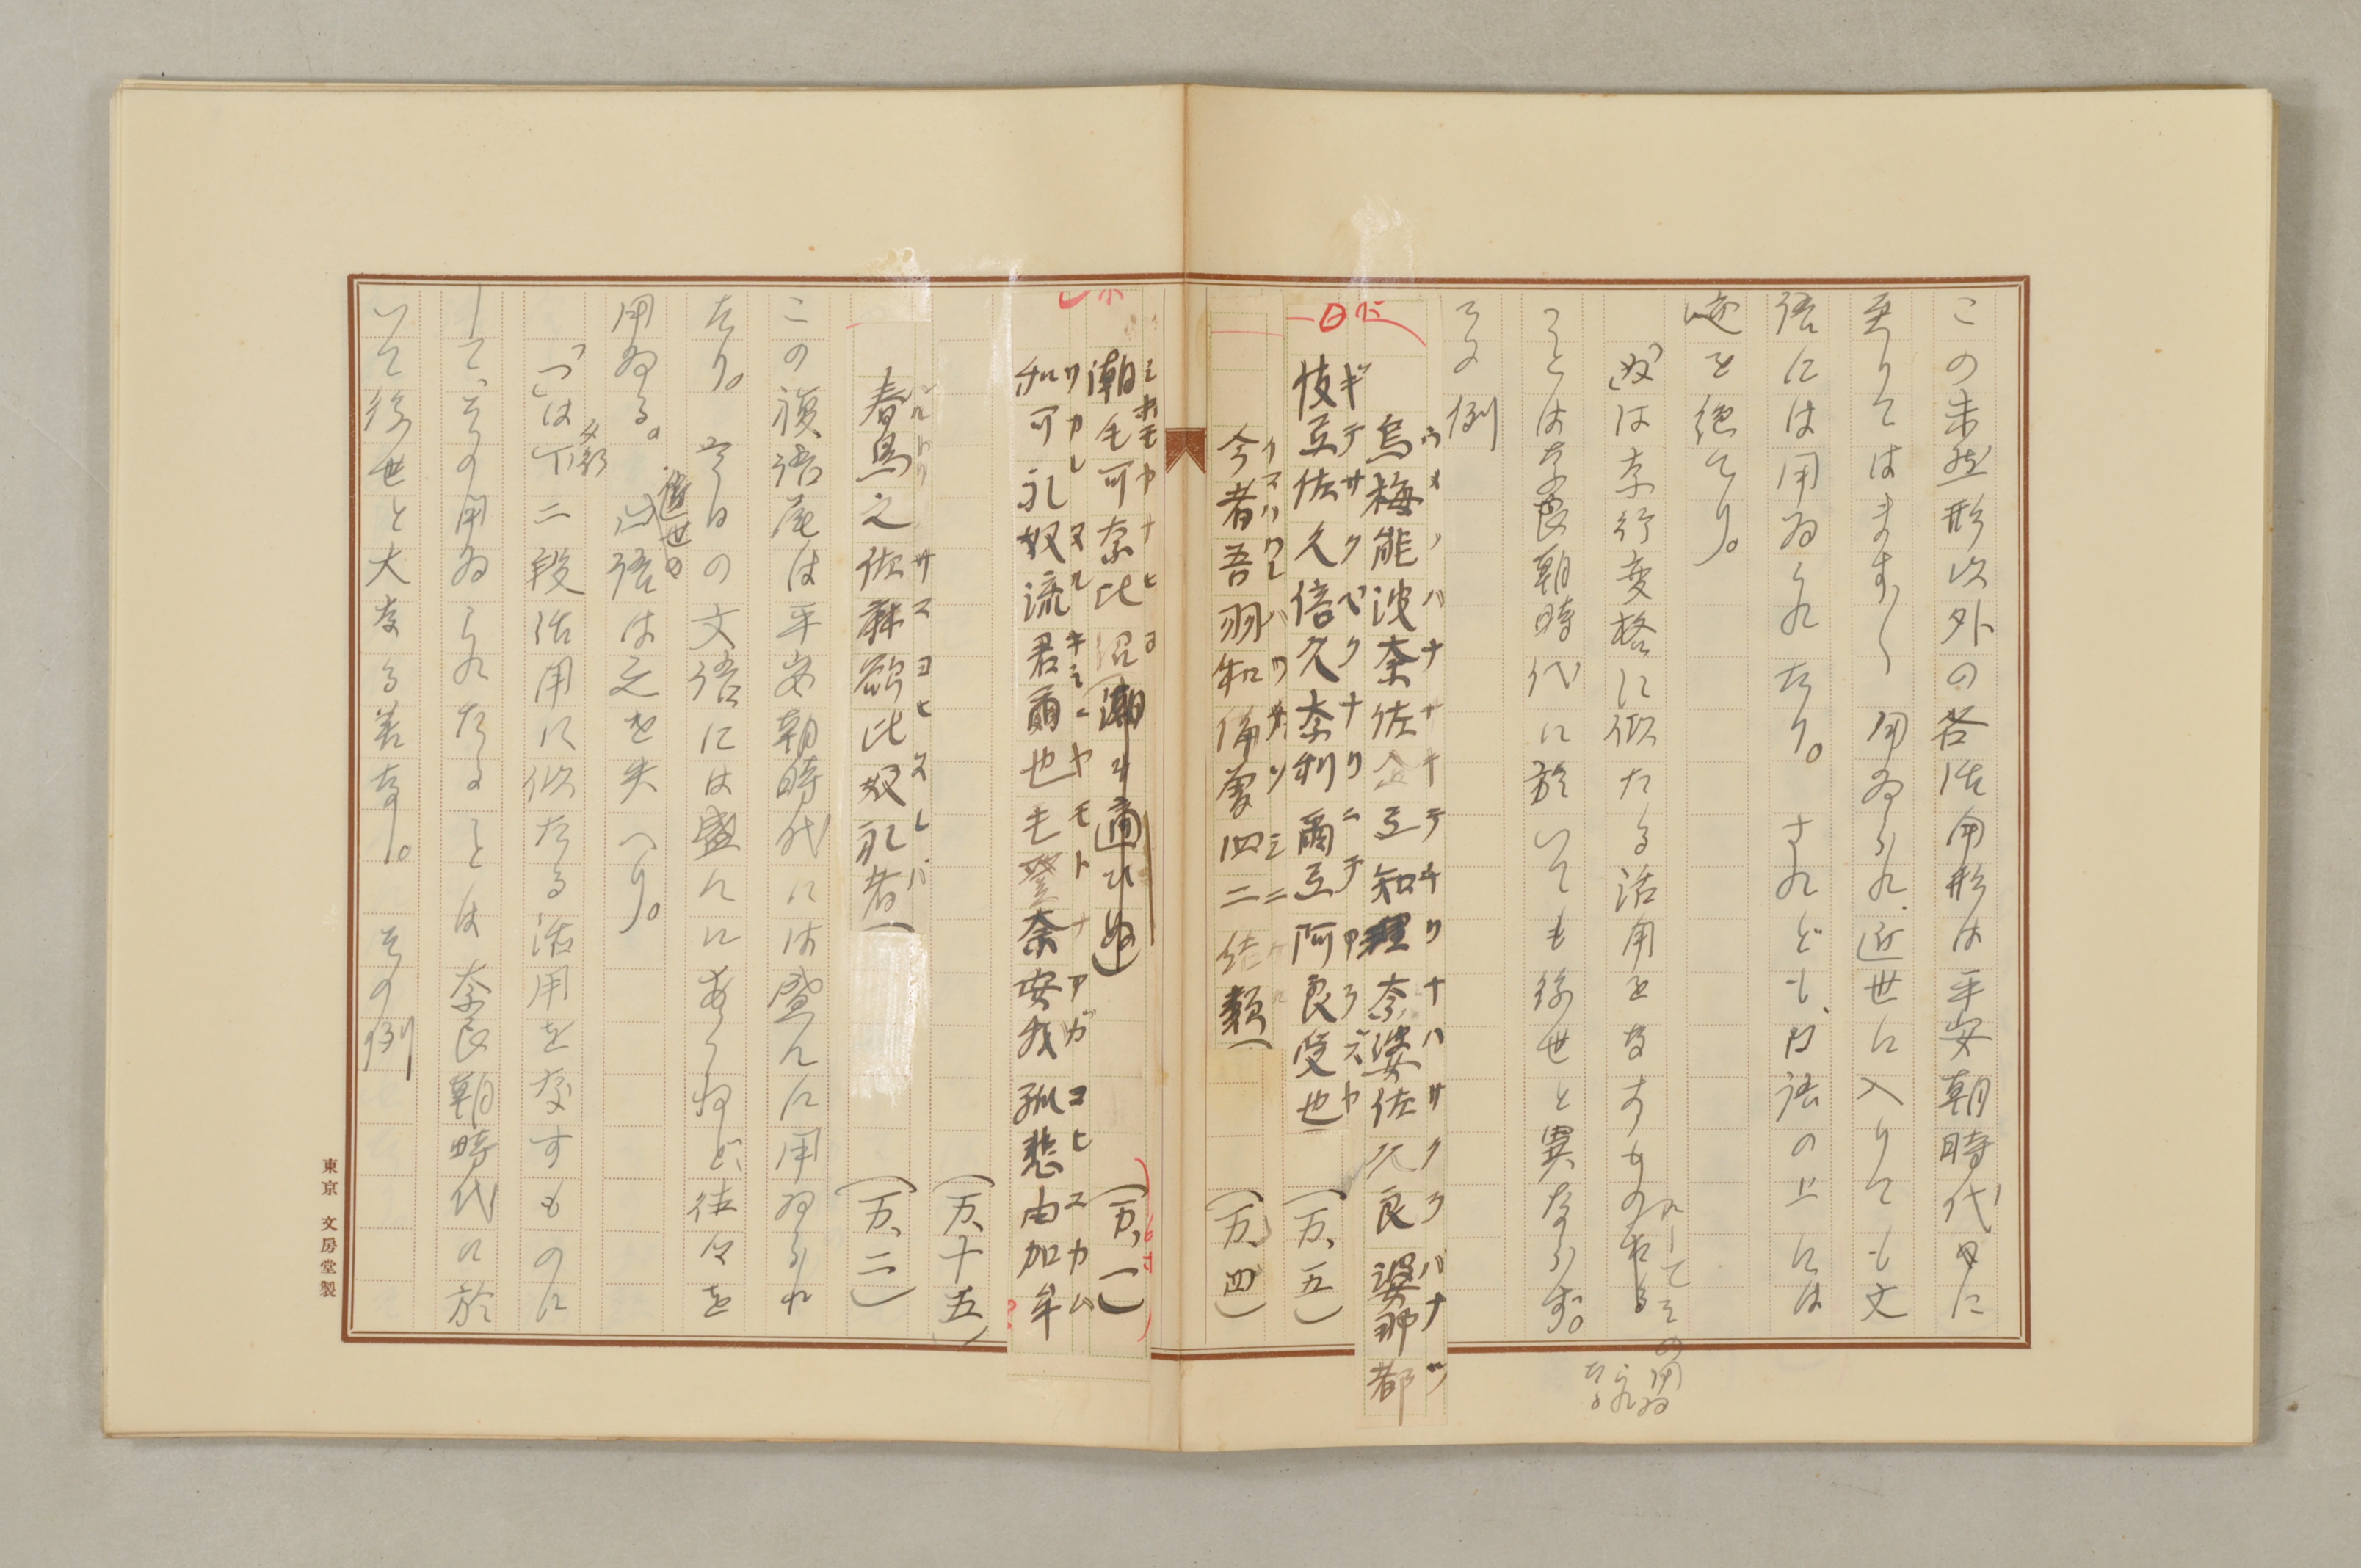 この未然形以外の各活用形は平安朝時代に
至りてはます〳〵用ゐられ、近世に入りても文
語には用ゐられたり。されども、口語の上には
迹を絶てり。
「ぬ」は奈行変格に似たる活用をなすもの
にしてその用ゐ
られたる
ことは奈良朝時代に於いても後世と異ならず。
その例
烏梅能波奈佐企弖知理奈婆佐久良婆那都
ウメノハナサキテチリナハサクラバナツ
伎弖佐久倍久奈利爾弖阿良受也
ギテサクベクナリニテアラズヤ
(万、五)
今者吾羽和備曽四二結類
イマハワレハワビソシニケル
(万、四)
潮毛可奈比沼(潮も適ひぬ)
シホモカナヒヌ
(万、一)
和可礼奴流君爾也毛登奈安我孤悲由加牟
ワカレヌルキミニヤモトナアガコヒユカム
(万、十五)
春鳥之佐麻欲比奴礼者
ハルトリノサマヨヒヌレバ
(万、二)
この複語尾は平安朝時代には盛んに用ゐられ
たり。今日の文語には盛んにあらねど、往々を
用ゐる。近世の口語は之を失へり。
「つ」は下二段活用に似たる活用を為すものに
して、その用ゐられたることは奈良朝時代に於
いて後世と大なる差なし。その例
東京 文房堂製